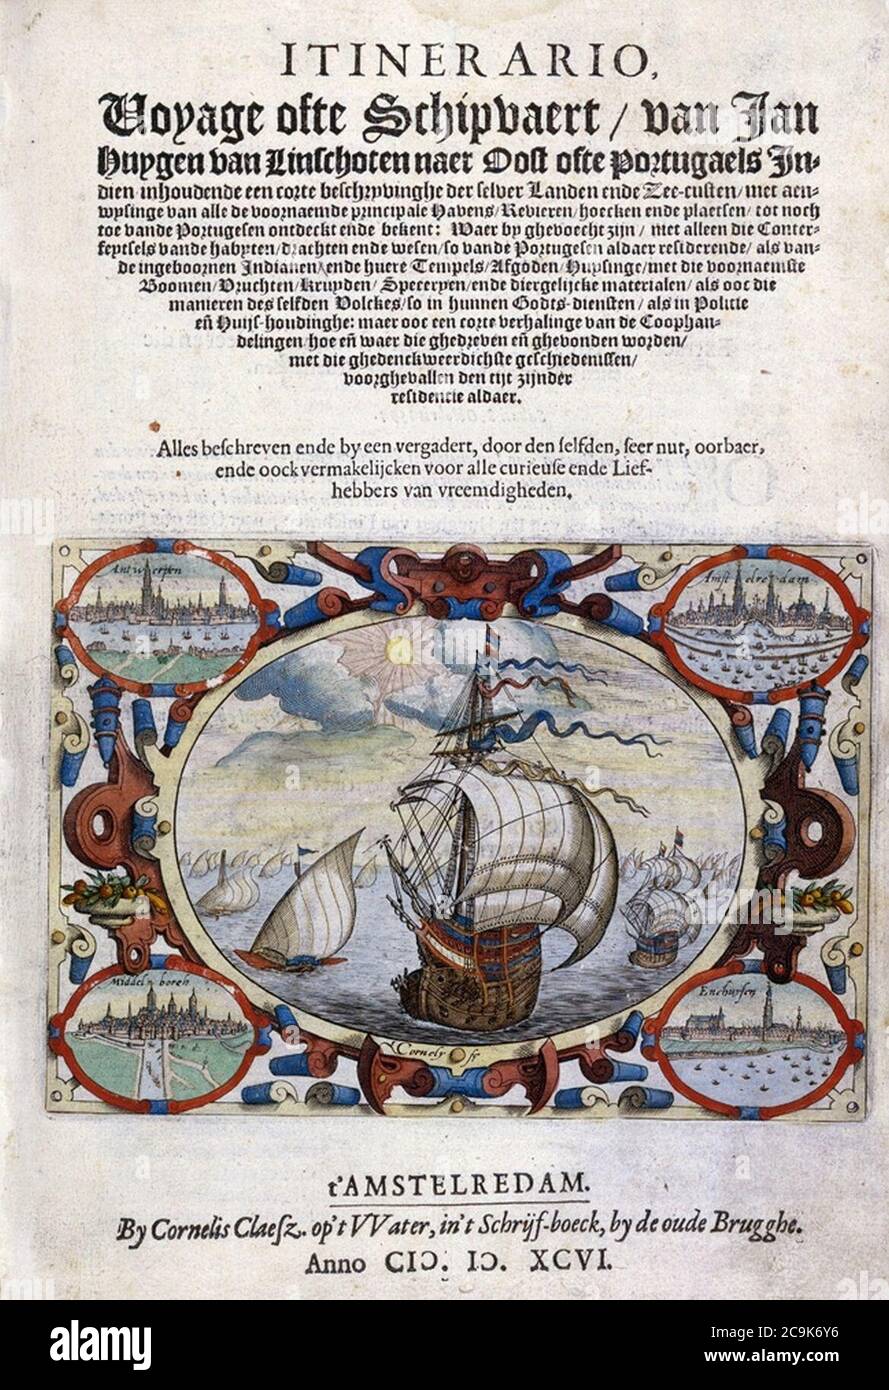 ITINERARIO,
Voyage ofte Schipvaert / van Jan
Huygen van Linschoten naer Oost ofte Portugaels In-
dien inhoudende een corte beschryvinghe der selver Landen ende Zee-custen / met aen-
wysinge van alle de voornaemde principale Havens / Revieren / hoecken ende plaetsen / tot noch
toe vande Portugesen ontdeckt ende bekent: Waer by ghevoecht zijn / niet alleen die Conter-
feytsels vande habyten / drachten ende wesen / so vande Portugesen aldaer residerende / als van-
de ingeboornen Indianen / ende huere Tempels / Afgoden / Huysinge / met die voornaemste
Boomen / Vruchten / Kruyden / Speceryen / ende diergelijcke materialen / als ooc die
manieren des selfden Volckes / so in hunnen Godts-diensten / als in Politie
eñ Huijs-houdinghe: maer ooc een corte verhalinge van de Coophan-
delingen / hoe eñ waer die ghedreven eñ ghevonden worden /
met die ghedenckweerdichste geschiedenissen /
voorghevallen den tijt zijnder
residentie aldaer.
Alles beschreven ende by een vergadert, door den selfden, seer nut, oorbaer,
ende oock vermakelijcken voor alle curieuse ende Lief-
hebbers van vreemdigheden.
Antwerpen
Amstelredam
Middelborch
Enchuysen
Cornely
t'AMSTELREDAM.
By Cornelis Claesz. op't VVater, in't Schrijf-boeck, by de oude Brugghe.
Anno CIↃ. IↃ. XCVI.
alamy
Image ID: 2C9K6Y6
www.alamy.com